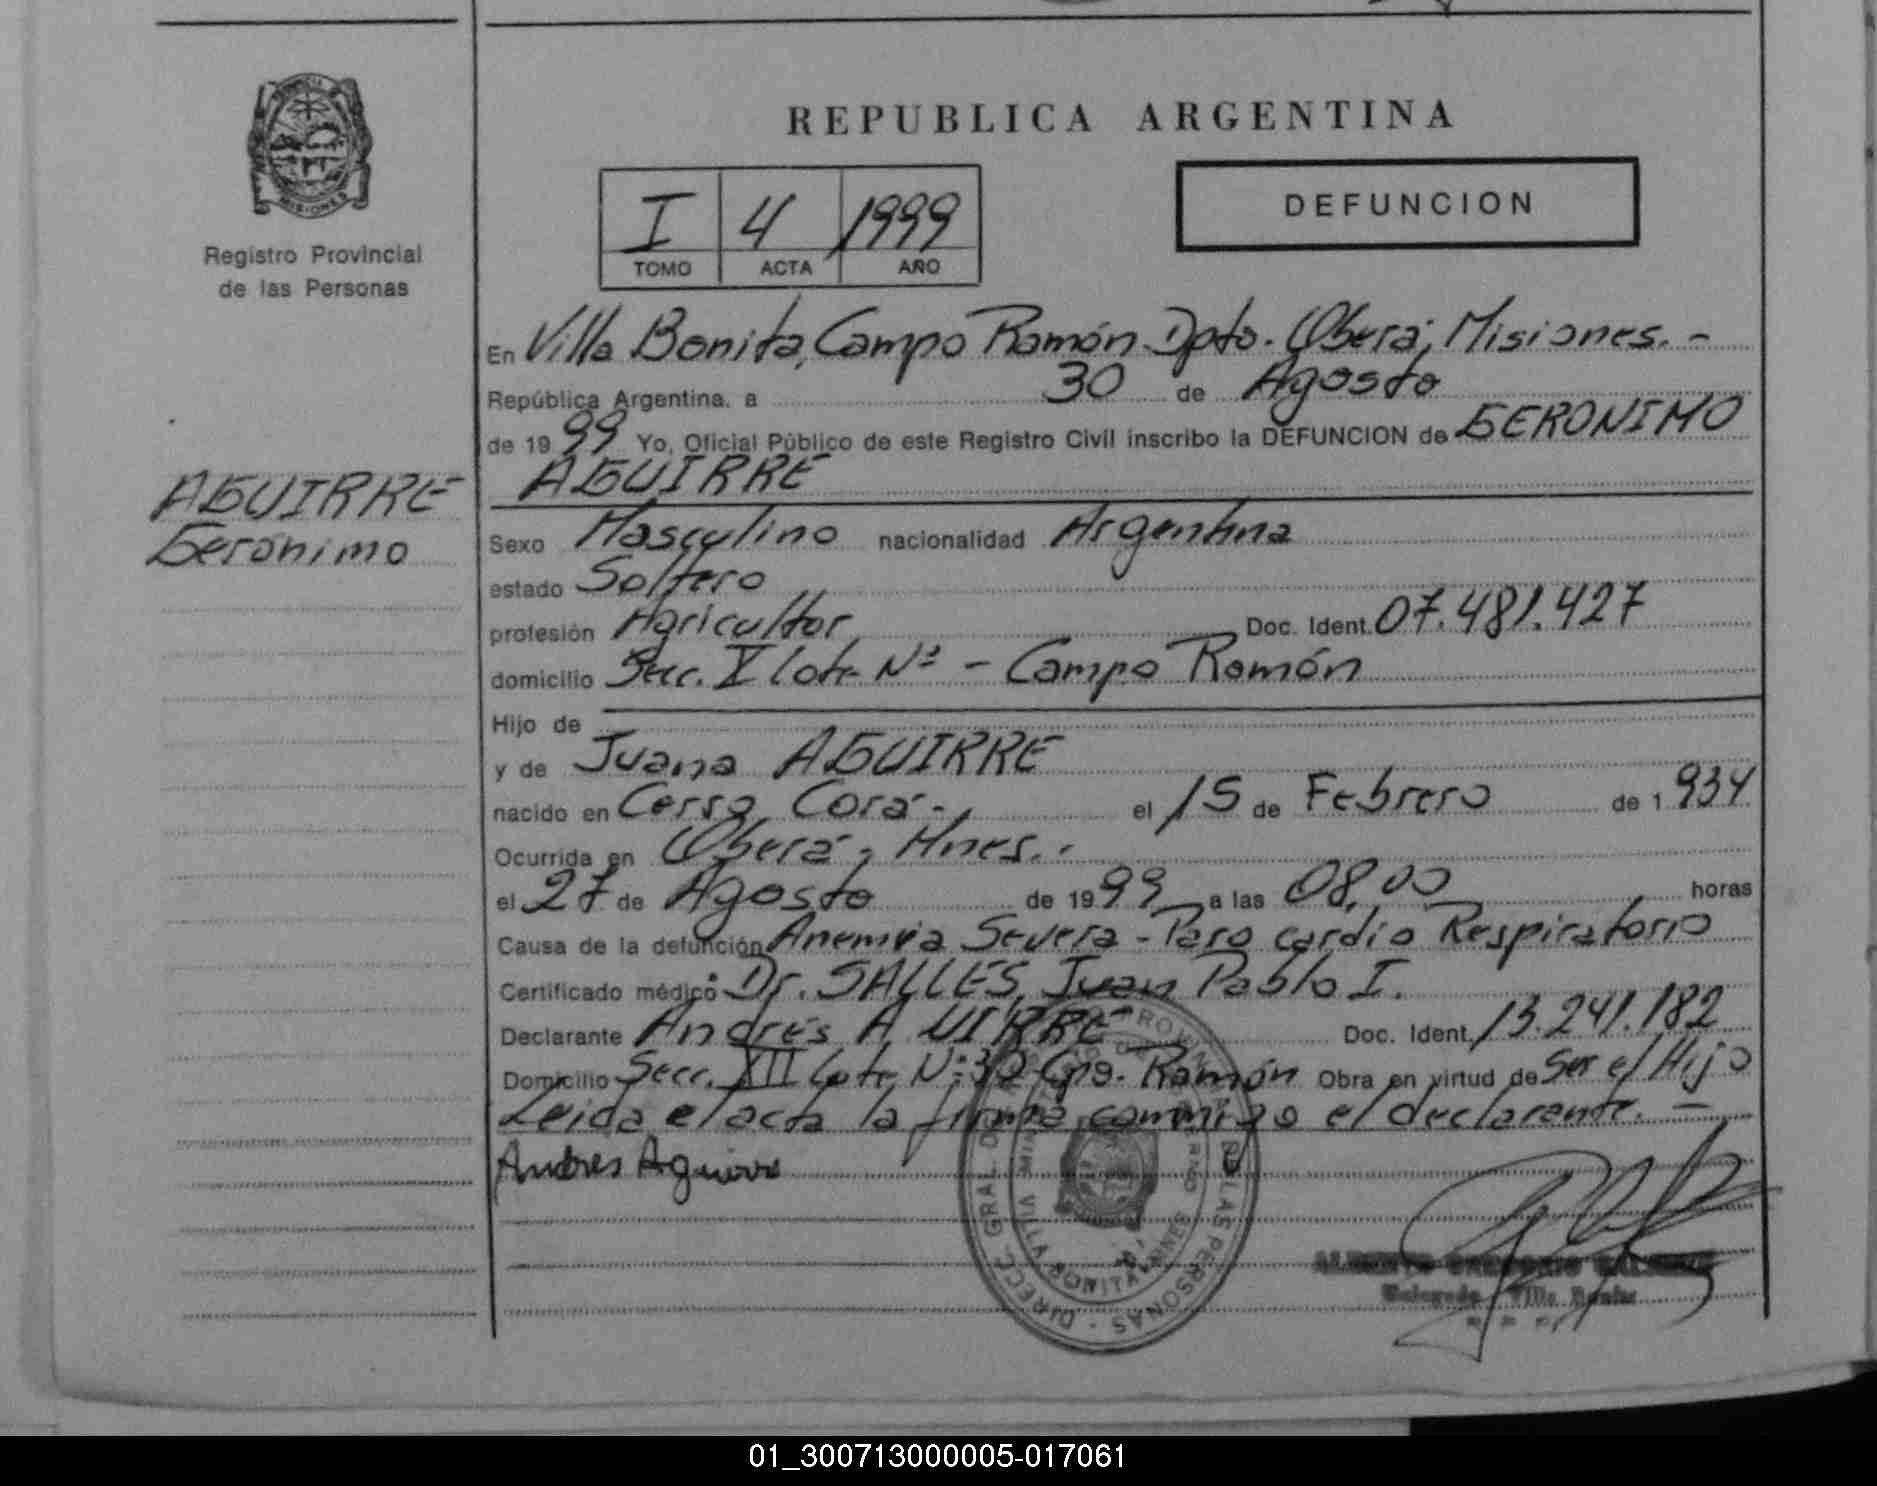 PROVINCIA DE
MISIONES
Registro Provincial
de las Personas
AGUIRRE
Gerónimo
REPUBLICA ARGENTINA
I 4 1999
TOMO ACTA AÑO
DEFUNCION
En Villa Bonita, Campo Ramón Dpto. Oberá, Misiones. -
República Argentina, a 30 de Agosto
de 1999 Yo, Oficial Público de este Registro Civil inscribo la DEFUNCION de GERONIMO
AGUIRRE
Sexo Masculino nacionalidad Argentina
estado Soltero
profesión Agricultor Doc. Ident. 07.481.427
domicilio Secc. X lote Nº - Campo Ramón
Hijo de
y de Juana AGUIRRE
nacido en Cerro Corá - el 15 de Febrero de 1934
Ocurrida en Oberá, Mnes. -
el 27 de Agosto de 1999 a las 08,00 horas
Causa de la defunción Anemia Severa - Paro cardio Respiratorio
Certificado médico: Dr. SALLES, Juan Pablo I.
Declarante Andrés A UIRRE Doc. Ident. 13.241.182
Domicilio Secc. XII Lote Nº: 30 Cpo. Ramón Obra en virtud de Ser el Hijo
Leida el acta la firma conmigo el declarante. -
Andres Aguirre
DIRECC. GRAL. DEL REG. PROVINCIAL DE LAS PERSONAS
VILLA BONITA - MNES
Delegado Villa Bonita
01_300713000005-017061